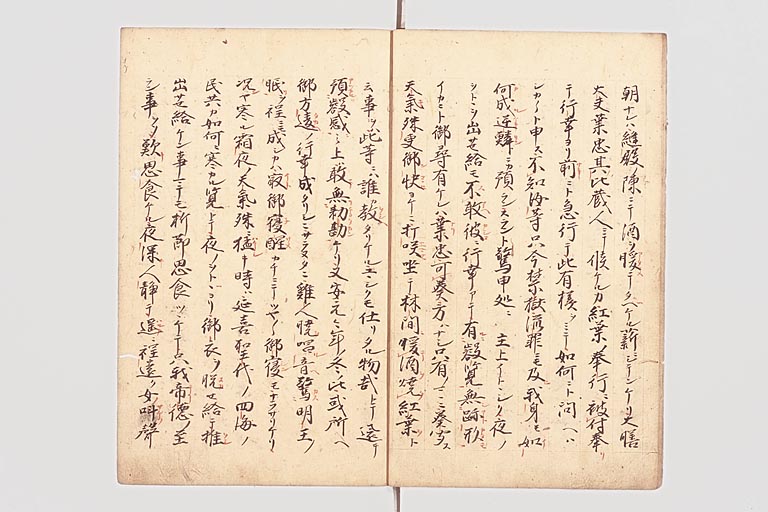 朝ナレハ縫殿陳ニテ酒ヲ煖テタヘケル薪ニシテンケリ大膳
大夫業忠其比蔵人ニテ候ケルカ紅葉ノ奉行ニ被付奉
テ行幸ヨリ前ニト急行テ此有様ヲミテ如何ニト問ヘハ
シカ〱ト申ス不知汝等只今禁獄流罪ニモ及我身モ如
何成逆鱗ニカ預ラスラント驚申処ニ 主上イトヽシク夜ノ
ヲトヽヲ出サセ給モ不敢彼ヘ行幸アテ有叡覧無跡形
イカニト御尋有ケレハ業忠可奏方ハナシ只有ノマヽニ奏ス
天氣殊更御快ヨケニ打咲坐テ林間煖酒焼紅葉ト
云事ヲハ此等ニハ誰カ教タリケルソヤヤサシクモ仕リタル物哉トテ還テ
預叡感ニ上敢無勅勘ケリ又安元ニ年ノ冬ノ比或所ヘ
御方違ノ行幸成タリシニサラヌタニ雞人暁唱音驚明王ノ
眠ヲ程ニモ成シカハ寂御寝醒カチニテツヤ〱御寝モナラサリケリ
况ヤ寒ル霜夜ノ天氣殊猛キ時ハ延喜聖代ノ四海ノ
民共カ如何ニ寒カルラント覧トテ夜ノヲトヽヨリ御衣ヲ脱セ給テ推
出サセ給ケン事ナトマテモ析節思食ツヽケテハ只我帝徳ノ至
ラヌ事ヲソ歎思食ケル夜深人静テ遥ニ程遠ク女叫聲